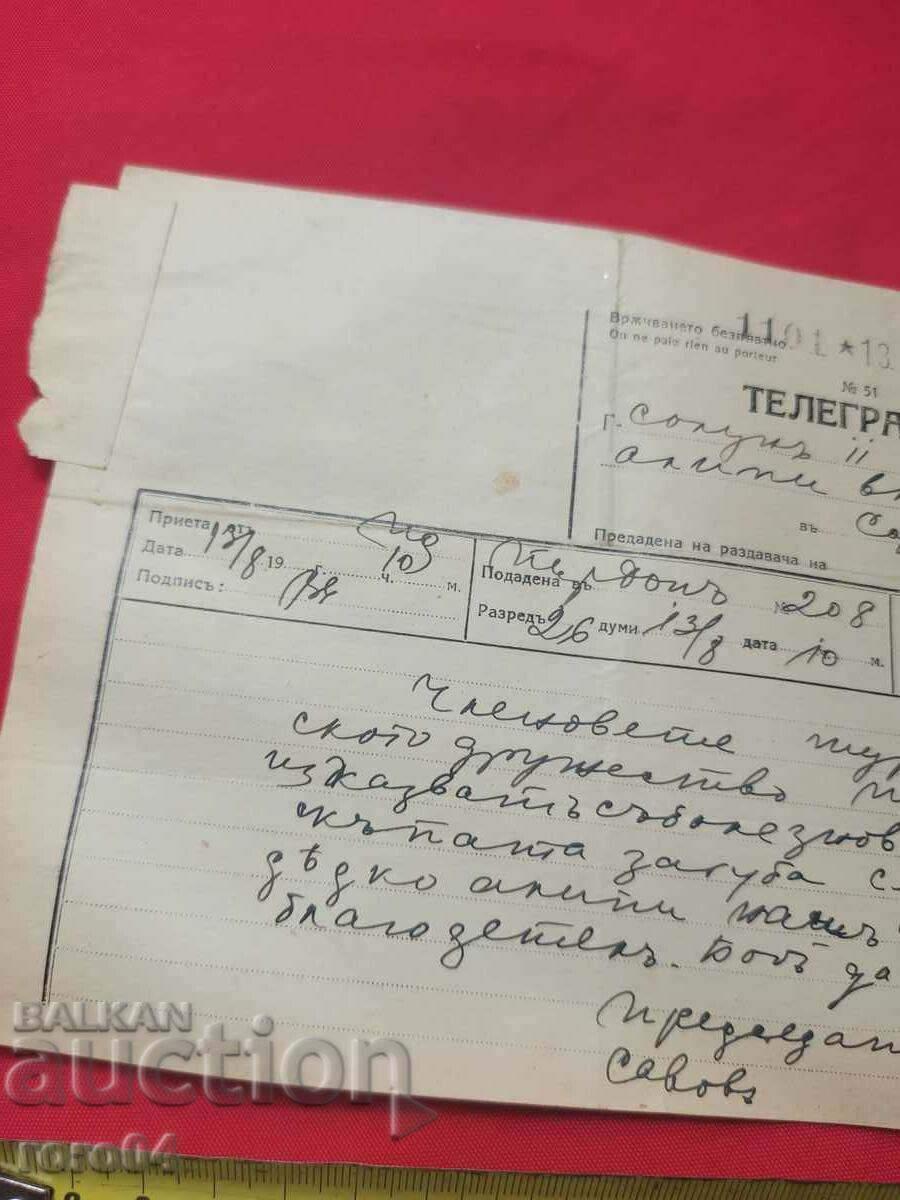 Врѫчването безплатно
On ne paie rien au porteur
1101 * 13
№ 51
ТЕЛЕГРА
Г. Солунъ 11
алипи
въ
Предадена на раздавача на
Приета отъ
Дата 13/8 19 г. 10 ч. м.
Подписъ:
Пирдопъ
Подадена въ № 208
Разредъ 26 думи 13/8 дата 10 м.
Членовете тур
ското дружество
изказватъ съболезнов
скъпата загуба
дѣдко алипи нашъ
благодетель. Богъ да
Председат
Савовъ
BALKAN
auction
гого04